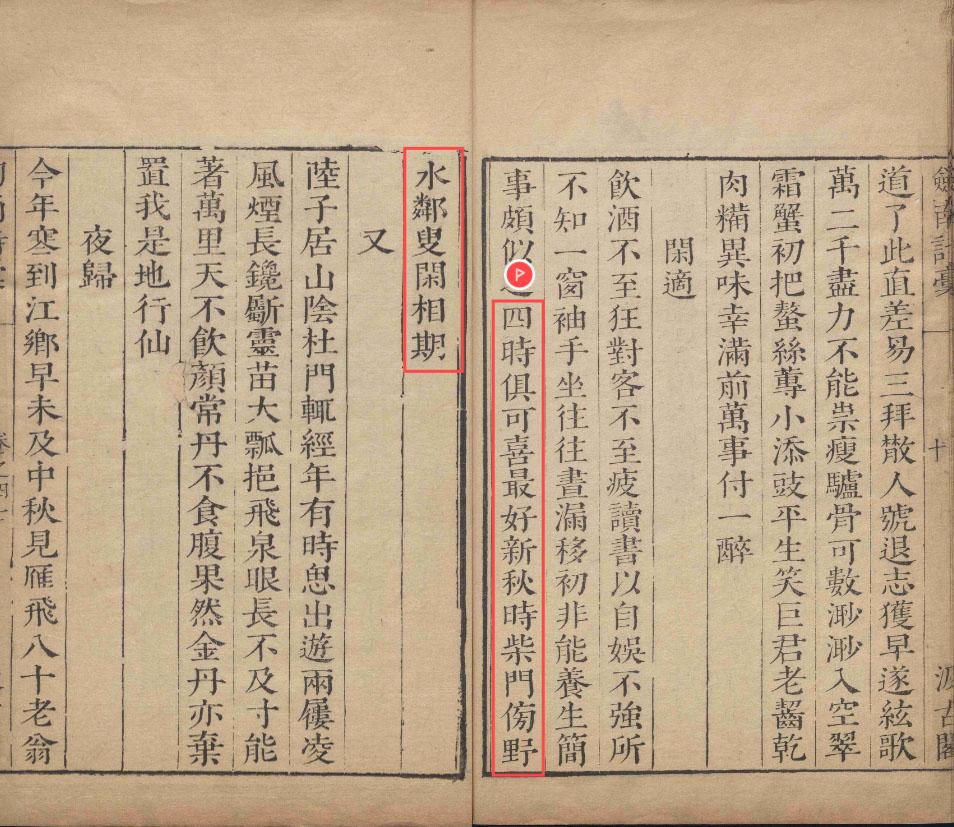 道了此直差易三拜散人號退志獲早遂絃歌
萬二千盡力不能祟瘦驢骨可數渺渺入空翠
霜蟹初把螯絲蓴小添豉平生笑巨君老齧乾
肉糒異味幸滿前萬事付一醉
閑適
飲酒不至狂對客不至疲讀書以自娛不強所
不知一窗袖手坐往往晝漏移初非能養生簡
事頗似
四時俱可喜最好新秋時柴門傍野
水鄰叟閑相期
又
陸子居山陰杜門輒經年有時思出遊兩屨凌
風煙長鑱斸靈苗大瓢挹飛泉眼長不及寸能
著萬里天不飲顏常丹不食腹果然金丹亦棄
置我是地行仙
夜歸
今年寒到江鄉早未及中秋見雁飛八十老翁